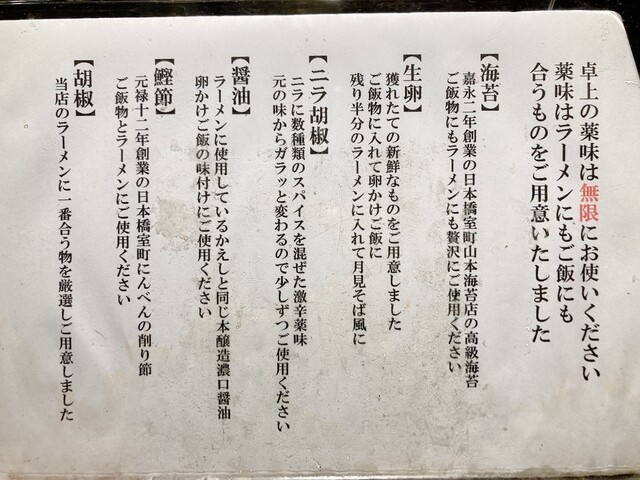 卓上の薬味は無限にお使いください
薬味はラーメンにもご飯にも
合うものをご用意いたしました
【海苔】
嘉永二年創業の日本橋室町山本海苔店の高級海苔
ご飯物にもラーメンにも贅沢にご使用ください
【生卵】
獲れたての新鮮なものをご用意しました
ご飯物に入れて卵かけご飯に
残り半分のラーメンに入れて月見そば風に
【ニラ胡椒】
ニラに数種類のスパイスを混ぜた激辛薬味
元の味からガラッと変わるので少しずつご使用ください
【醤油】
ラーメンに使用しているかえしと同じ本醸造濃口醤油
卵かけご飯の味付けにご使用ください
【鰹節】
元禄十二年創業の日本橋室町にんべんの削り節
ご飯物とラーメンにご使用ください
【胡椒】
当店のラーメンに一番合う物を厳選しご用意しました